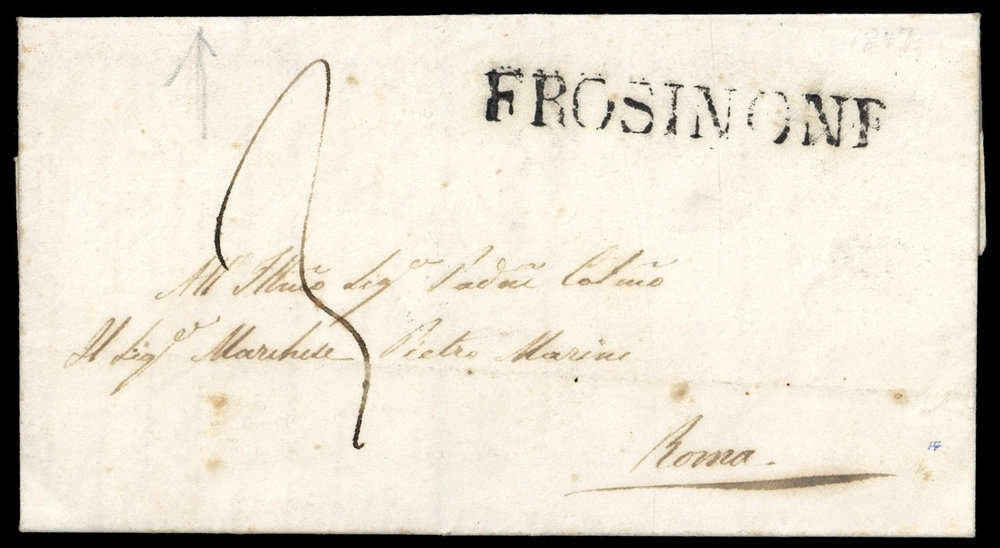 FROSINONE
3
All' Illmo Sigr Padne Colmo
Il Sigr Marchese Pietro Marini
Roma.